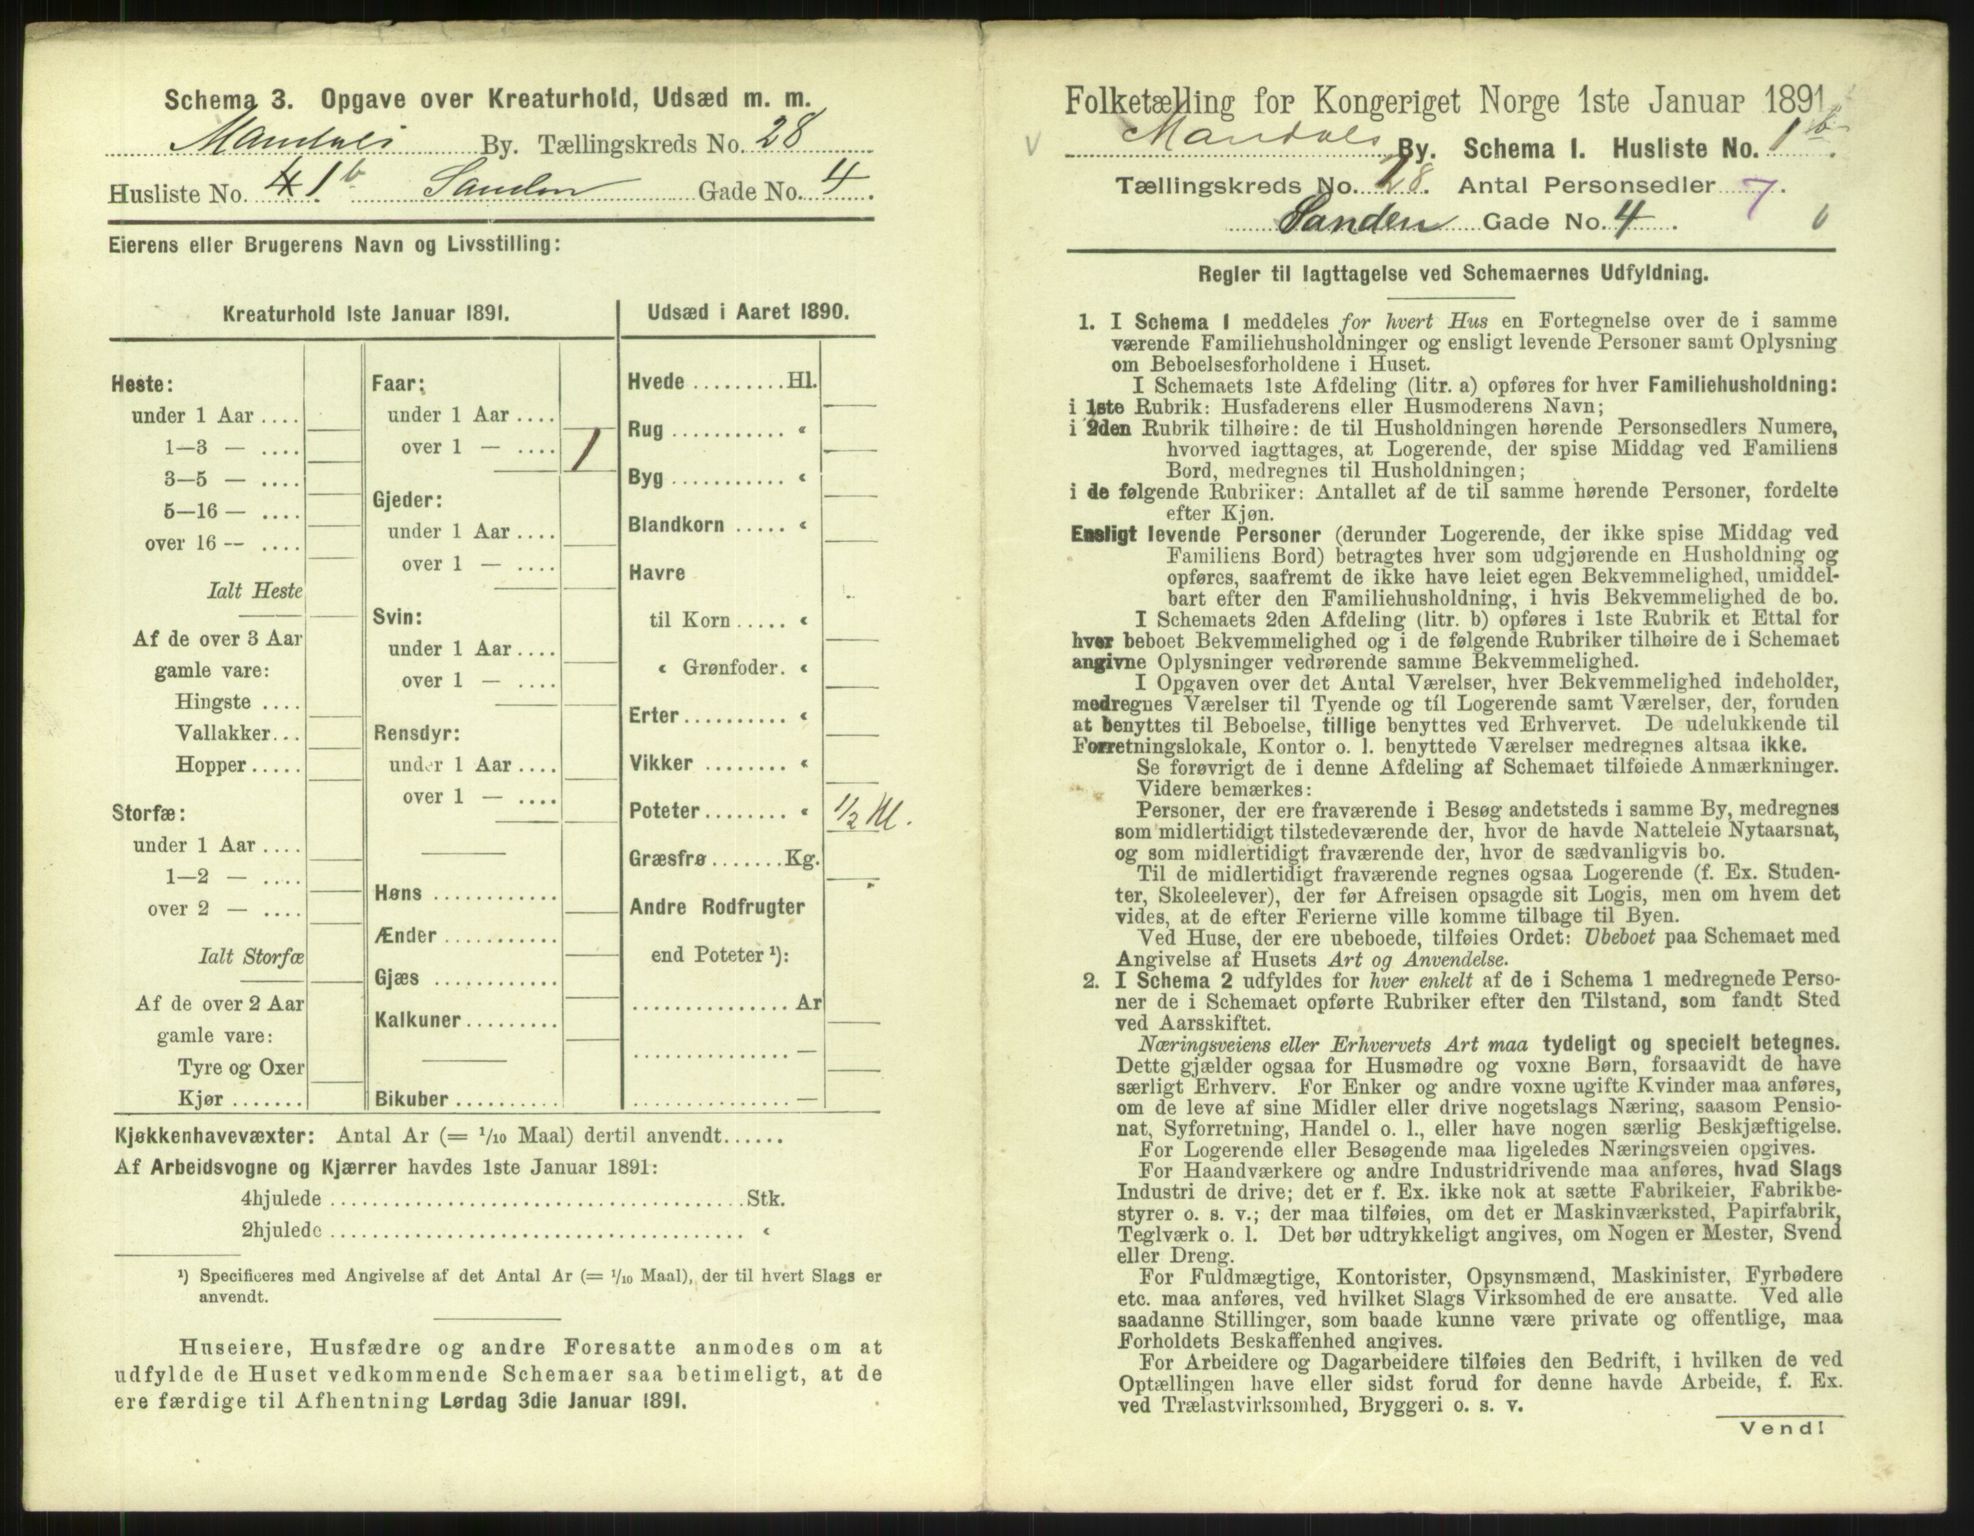 Schema 3. Opgave over Kreaturhold, Udsæd m. m.
Mandals By. Tællingskreds No. 28
Husliste No. 1b Sanden Gade No. 4.
Eierens eller Brugerens Navn og Livsstilling:
Kreaturhold 1ste Januar 1891.
Heste:
under 1 Aar ....
1—3 — ....
3—5 — ....
5—16 — ....
over 16 — ....
Ialt Heste
Af de over 3 Aar
gamle vare:
Hingste ....
Vallakker...
Hopper.....
Storfæ:
under 1 Aar ....
1—2 — ....
over 2 — ....
Ialt Storfæ
Af de over 2 Aar
gamle vare:
Tyre og Oxer
Kjør .......
Faar:
under 1 Aar ....
over 1 — .... 1
Gjeder:
under 1 Aar ....
over 1 — ....
Svin:
under 1 Aar ....
over 1 — ....
Rensdyr:
under 1 Aar ....
over 1 — ....
Høns ............
Ænder ...........
Gjæs ............
Kalkuner.........
Bikuber ..........
Udsæd i Aaret 1890.
Hvede .........Hl.
Rug ........... «
Byg ........... «
Blandkorn ..... «
Havre
til Korn ..... «
« Grønfoder. «
Erter .......... «
Vikker ........ «
Poteter........ « 1/2 Hl.
Græsfrø .......Kg.
Andre Rodfrugter
end Poteter ¹):
............... Ar
............... —
............... —
Kjøkkenhavevæxter: Antal Ar (= 1/10 Maal) dertil anvendt......
Af Arbeidsvogne og Kjærrer havdes 1ste Januar 1891:
4hjulede ....................................Stk.
2hjulede .................................... «
¹) Specificeres med Angivelse af det Antal Ar (= 1/10 Maal), der til hvert Slags er
anvendt.
Huseiere, Husfædre og andre Foresatte anmodes om at
udfylde de Huset vedkommende Schemaer saa betimeligt, at de
ere færdige til Afhentning Lørdag 3die Januar 1891.
Folketælling for Kongeriget Norge 1ste Januar 1891.
Mandals By. Schema 1. Husliste No. 1b.
Tællingskreds No. 28. Antal Personsedler 7.
Sanden Gade No. 4.
Regler til Iagttagelse ved Schemaernes Udfyldning.
1. I Schema 1 meddeles for hvert Hus en Fortegnelse over de i samme
værende Familiehusholdninger og ensligt levende Personer samt Oplysning
om Beboelsesforholdene i Huset.
I Schemaets 1ste Afdeling (litr. a) opføres for hver Familiehusholdning:
i 1ste Rubrik: Husfaderens eller Husmoderens Navn;
i 2den Rubrik tilhøire: de til Husholdningen hørende Personsedlers Numere,
hvorved iagttages, at Logerende, der spise Middag ved Familiens
Bord, medregnes til Husholdningen;
i de følgende Rubriker: Antallet af de til samme hørende Personer, fordelte
efter Kjøn.
Ensligt levende Personer (derunder Logerende, der ikke spise Middag ved
Familiens Bord) betragtes hver som udgjørende en Husholdning og
opføres, saafremt de ikke have leiet egen Bekvemmelighed, umiddel-
bart efter den Familiehusholdning, i hvis Bekvemmelighed de bo.
I Schemaets 2den Afdeling (litr. b) opføres i 1ste Rubrik et Ettal for
hver beboet Bekvemmelighed og i de følgende Rubriker tilhøire de i Schemaet
angivne Oplysninger vedrørende samme Bekvemmelighed.
I Opgaven over det Antal Værelser, hver Bekvemmelighed indeholder,
medregnes Værelser til Tyende og til Logerende samt Værelser, der, foruden
at benyttes til Beboelse, tillige benyttes ved Erhvervet. De udelukkende til
Forretningslokale, Kontor o. l. benyttede Værelser medregnes altsaa ikke.
Se forøvrigt de i denne Afdeling af Schemaet tilføiede Anmærkninger.
Videre bemærkes:
Personer, der ere fraværende i Besøg andetsteds i samme By, medregnes
som midlertidigt tilstedeværende der, hvor de havde Natteleie Nytaarsnat,
og som midlertidigt fraværende der, hvor de sædvanligvis bo.
Til de midlertidigt fraværende regnes ogsaa Logerende (f. Ex. Studen-
ter, Skoleelever), der før Afreisen opsagde sit Logis, men om hvem det
vides, at de efter Ferierne ville komme tilbage til Byen.
Ved Huse, der ere ubeboede, tilføies Ordet: Ubeboet paa Schemaet med
Angivelse af Husets Art og Anvendelse.
2. I Schema 2 udfyldes for hver enkelt af de i Schema 1 medregnede Perso-
ner de i Schemaet opførte Rubriker efter den Tilstand, som fandt Sted
ved Aarsskiftet.
Næringsveiens eller Erhvervets Art maa tydeligt og specielt betegnes.
Dette gjælder ogsaa for Husmødre og voxne Børn, forsaavidt de have
særligt Erhverv. For Enker og andre voxne ugifte Kvinder maa anføres,
om de leve af sine Midler eller drive nogetslags Næring, saasom Pensio-
nat, Syforretning, Handel o. l., eller have nogen særlig Beskjæftigelse.
For Logerende eller Besøgende maa ligeledes Næringsveien opgives.
For Haandværkere og andre Industridrivende maa anføres, hvad Slags
Industri de drive; det er f. Ex. ikke nok at sætte Fabrikeier, Fabrikbe-
styrer o. s. v.; der maa tilføies, om det er Maskinværksted, Papirfabrik,
Teglværk o. l. Det bør udtrykkeligt angives, om Nogen er Mester, Svend
eller Dreng.
For Fuldmægtige, Kontorister, Opsynsmænd, Maskinister, Fyrbødere
etc. maa anføres, ved hvilket Slags Virksomhed de ere ansatte. Ved alle
saadanne Stillinger, som baade kunne være private og offentlige, maa
Forholdets Beskaffenhed angives.
For Arbeidere og Dagarbeidere tilføies den Bedrift, i hvilken de ved
Optællingen have eller sidst forud for denne havde Arbeide, f. Ex.
ved Trælastvirksomhed, Bryggeri o. s. v.
Vend!